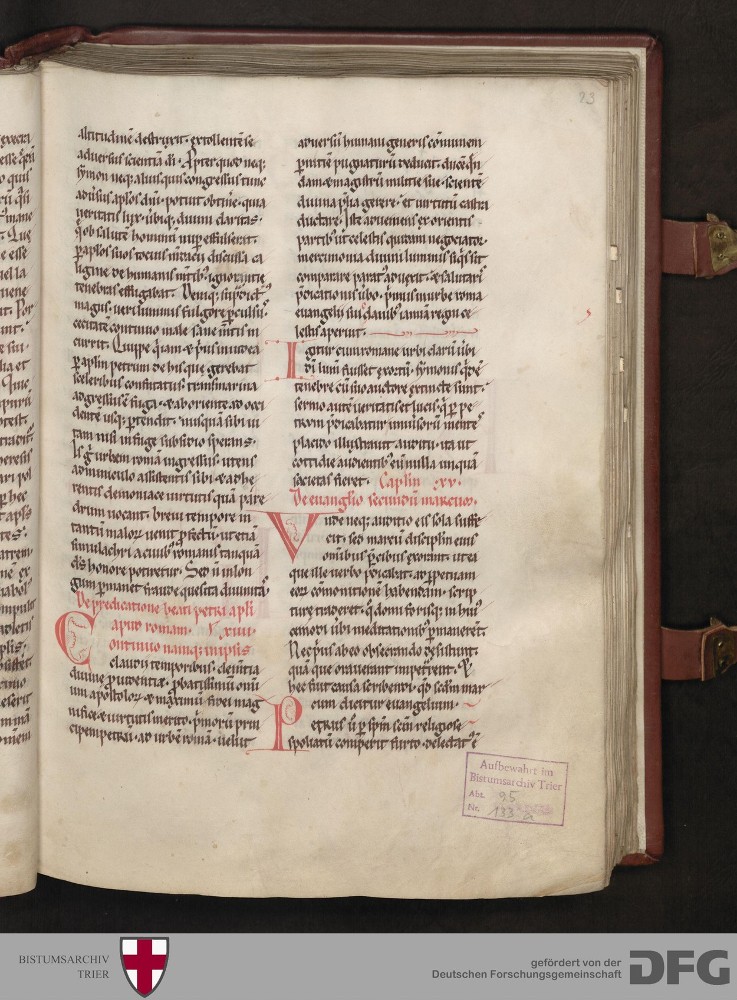 altitudinē destruxit. extollentē se
aduersus scientiā dī. Apter quod neq;
symon neq; alius quis congressus tunc
aduersus aplos dni. potuit obtine. quia
ueritatis lux. ubiq; diuini claritas.
qd ob salutē hominū nup effulserit.
p aplos suos totius mūdi discussa ca
ligine de humanis mentib; ignorantie
tenebras effugabat. Deniq; supdict
magus. ueri luminis fulgore pculsus.
cecitatē continuo male sane mtis in
currit. Quippe q iam & prius in iudea
p aplm petrum de his que gerebat
sceleribus confutatus. transmarina
adgressus ē fuga. & ab oriente ad occi
dentē usq; ptendit. nusquā sibi ui
tam nisi in fuge subsidio sperans.
Is g urbem romā ingressus. utens
adminiculo assistentis sibi & adhe
rentis demoniace uirtutis quā pare
drum uocant. breui tempore in
tantū malorū uenit pfectū. ut etiā
simulachri a ciuib; romanis tanquā
ds honore potiretur. Sed ñ in lon
gum pmanet fraude quesita diuinitas.
De predicatione beati petri apli
apud romam. xiiii.
Continuo namq; in ipsis
claudii temporibus. clemtia
diuine puidentie. pbatissimū omi
um apostolorū. & maximū fidei mag
nificē & uirtutis merito. primorū prin
cipem petrū. ad urbē romā. uelut
aduersū humani generis cōmunem
pnitiē pugnaturū deducit. ducē qn
dam & magistrū militie sue. scientē
diuina plia gerere. et uirtutū castra
ductare. Iste adueniens ex orientis
partib; ut celestis quidam negociator
mercimonia diuini luminis siq sit
comparare parat aduexit. & salutari
pdicationis ubo. primus in urbe roma
euangelii sui clauib; ianuā regni ce
lestis aperuit.
Igitur cum romane urbi clarū ubi
dī lumē fuisset exortū. symonis qdē
tenebre cū suo auctore extincte sunt.
sermo autē ueritatis et lucis. q p pe
trum pdicabatur uniuersorū mentes
placido illustrauit auditu. ita ut
cottidie audientib; eū nulla unquā
societas fieret. Caplm xv.
De euanglio secundū marcum.
Vnde neq; auditio eis sola suffe
cit. sed marcū disciplm eius
omib; pcibus exorant. ut ea
que ille uerbo pdicabat. ad ppetuam
eorū cōmonitionē habendam. scrip
ture traderet. q domi forisq; in huius
cemodi ubi meditationib; pmanerent.
Nec prius ab eo obsecrando desistunt.
quā que orauerant impetrent. Et
hec fuit causa scribendi. qd scdm mar
cum dicitur euangelium.
Petrus ū ut p spm scm religiose
spoliatū comperit furto. delectat ē
93
Aufbewahrt im
Bistumsarchiv Trier
Abt. 95
Nr. 133 a
BISTUMSARCHIV
TRIER
gefördert von der
Deutschen Forschungsgemeinschaft
DFG